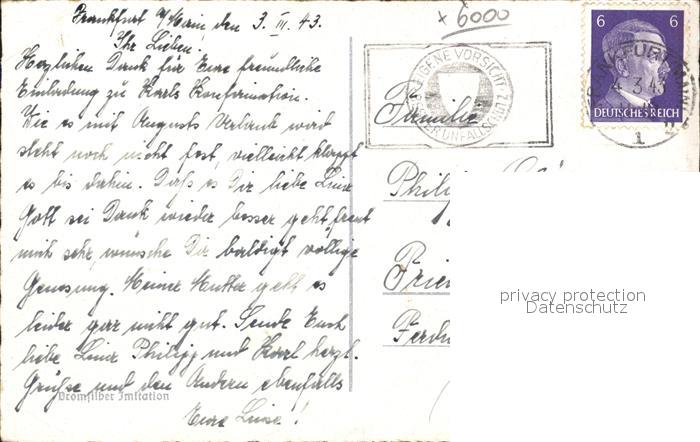 Frankfurt a/Main den 3. III. 43.
Ihr Lieben.
Herzlichen Dank für Eure freundliche
Einladung zu Karls Konfirmation.
Wie es mit Augusts Verlaub wird
steht noch nicht fest, vielleicht klappt
es bis dahin. Daß es Dir liebe Lina
Gott sei Dank wieder besser geht, freut
mich sehr, wünsche Dir baldigst völlige
Genesung. Meiner Mutter geht es
leider garnicht gut. Sende Euch
liebe Lina Philipp und Karl herzl.
Grüße und den Andern ebenfalls
Eure Luise!
Bromsilber Imitation
x 6000
EIGENE VORSICHT:
BESTER UNFALLSCHUTZ
6 6
DEUTSCHES REICH
4.3.43
1
Familie
Phili
Frie
Ferdi
privacy protection
Datenschutz